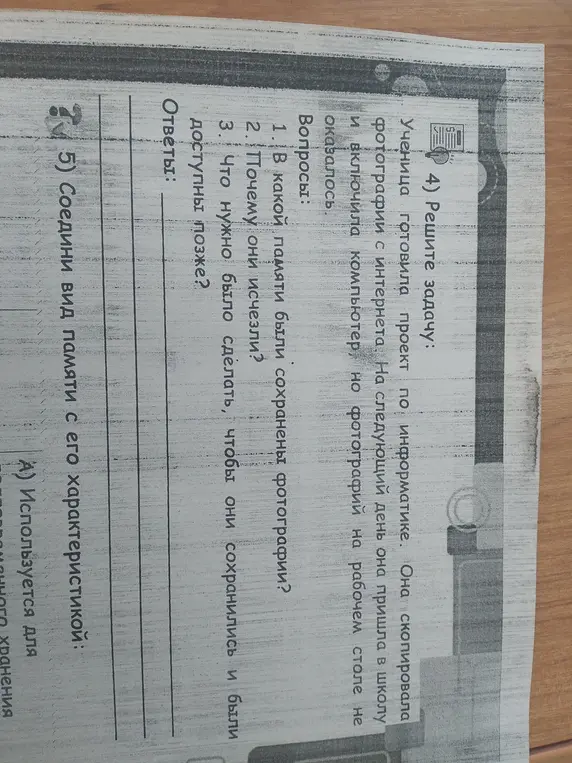 4) Решите задачу:
Ученица готовила проект по информатике. Она скопировала
фотографии с интернета. На следующий день она пришла в школу
и включила компьютер, но фотографий на рабочем столе не
оказалось.
Вопросы:
1. В какой памяти были сохранены фотографии?
2. Почему они исчезли?
3. Что нужно было сделать, чтобы они сохранились и были
доступны позже?
Ответы:
5) Соедини вид памяти с его характеристикой:
А) Используется для
хранения